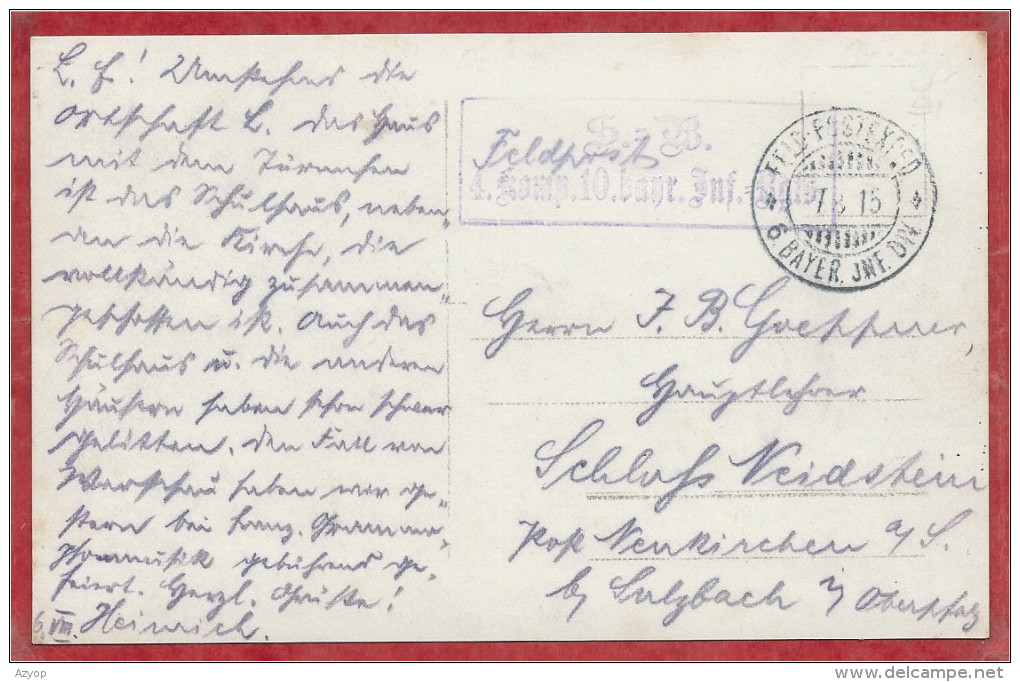 L. F.! Umstehens die
Ortschaft L. das Haus
mit dem Türmchen
ist das Schulhaus, neben-
an die Kirche, die
vollständig zusammen-
geschossen ist. Auch das
Schulhaus u. die anderen
Häusern haben schon schwer
gelitten. Den Fall von
Warschau haben wir ge-
stern bei franz. Grammo-
phonmusik gebührend ge-
feiert. Herzl. Grüße!
6. VIII. Heinrich.
S. B.
Feldpost
4. Komp. 10. bayr. Inf. Rgts.
FELD-POSTEXPED.
7 8 15
6. BAYER. INF. DIV.
Herrn J. B. Goeppner,
Hauptlehrer
Schloss Neidstein
Post Neukirchen a/S.
b/ Sulzbach i/ Oberpfalz
Azyop
delcampe.net